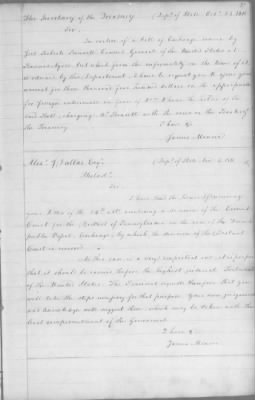 The Secretary of the Treasury. Dept. of State Oct.
Sir,
In virtue of a bill of Exchange drawn by
Joel Roberts Poinsett Consul General of the United States at
Buenos Ayres but which from the informality on the face of it
is by this Department, I have to request you to give your
warrant for three thousand four hundred dollars on the appropriation
for foreign intercourse in favor of
charging Mr. Poinsett with the same on the Books of
the Treasury.
I have &
James Monroe
Alex. J. Dallas Esqr. Dept. of State Nov.
Philada.
Sir,
I have had the honor of receiving
your letter of the inclosing a decree of the Circuit
Court for the District of Pennsylvania in the case of the
public Exchange, by which the decision of the District
Court is reversed.
As this case is a very important one it is proper
that it should be carried before the highest judicial Tribunal
of the United States. The President expects therefore that you
will take the steps necessary for that purpose. Your own judgment
and knowledge will suggest those which may be taken with the
least of the Government.
I have &
James Monroe